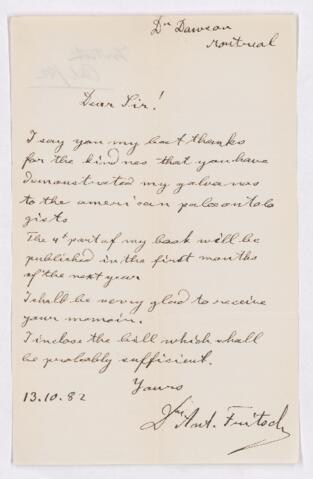 Dr Dawson
Montreal
Dear Sir!
I say you my best thanks
for the kindnes that you have
demonstrated my galvanos
to the american palaeontolo
gists
The 4t part of my book will be
published in the first months
of the next year
I shall be very glad to receive
your memoir.
I inclose the bill which shall
be probably sufficient.
Yours
13.10.82
Dr Ant. Fritsch